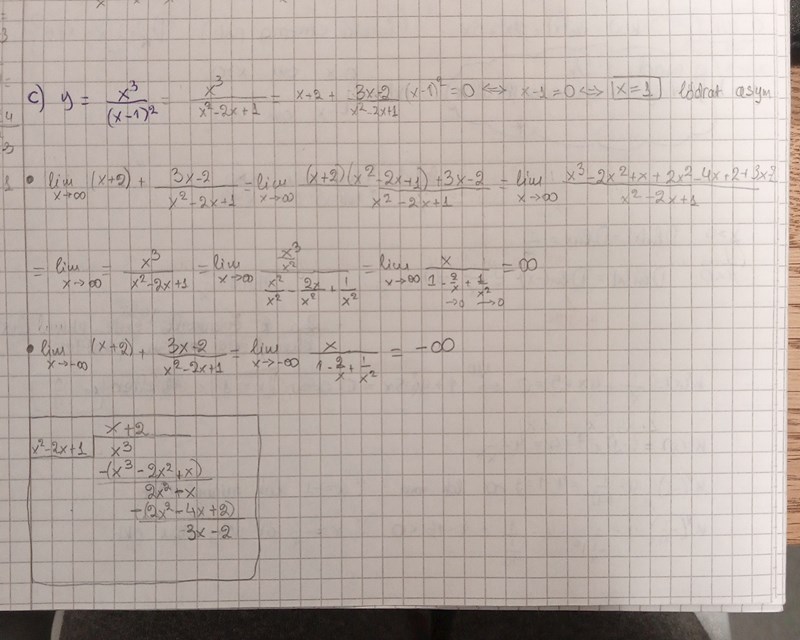 c) y = x³/(x-1)² = x³/(x²-2x+1) = x+2 + (3x-2)/(x²-2x+1) (x-1)² = 0 ⇔ x-1=0 ⇔ x=1 lodrät asym
• lim x→∞ (x+2) + (3x-2)/(x²-2x+1) = lim x→∞ ((x+2)(x²-2x+1)+3x-2)/(x²-2x+1) = lim x→∞ (x³-2x²+x+2x²-4x+2+3x-2)/(x²-2x+1)
= lim x→∞ = x³/(x²-2x+1) = lim x→∞ (x³/x²)/(x²/x² - 2x/x² + 1/x²) = lim x→∞ x/(1 - 2/x + 1/x²) = ∞
→0 →0
• lim x→-∞ (x+2) + (3x-2)/(x²-2x+1) = lim x→-∞ x/(1 - 2/x + 1/x²) = -∞
x+2
x²-2x+1 x³
-(x³-2x²+x)
2x²-x
-(2x²-4x+2)
3x-2